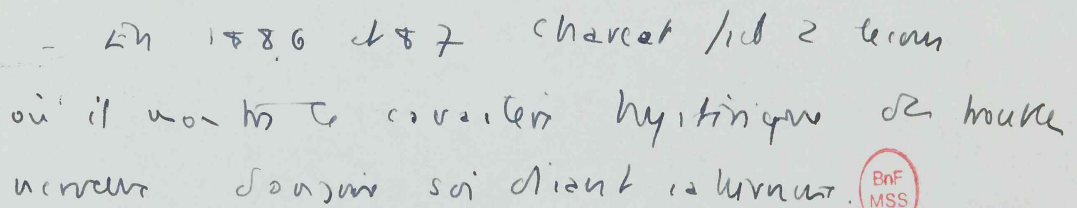 - En 1886 et 87 Charcot fit 2 leçons
où il montre le caractère hystérique de troubles
nerveux soi disant saturnins.
BnF
MSS